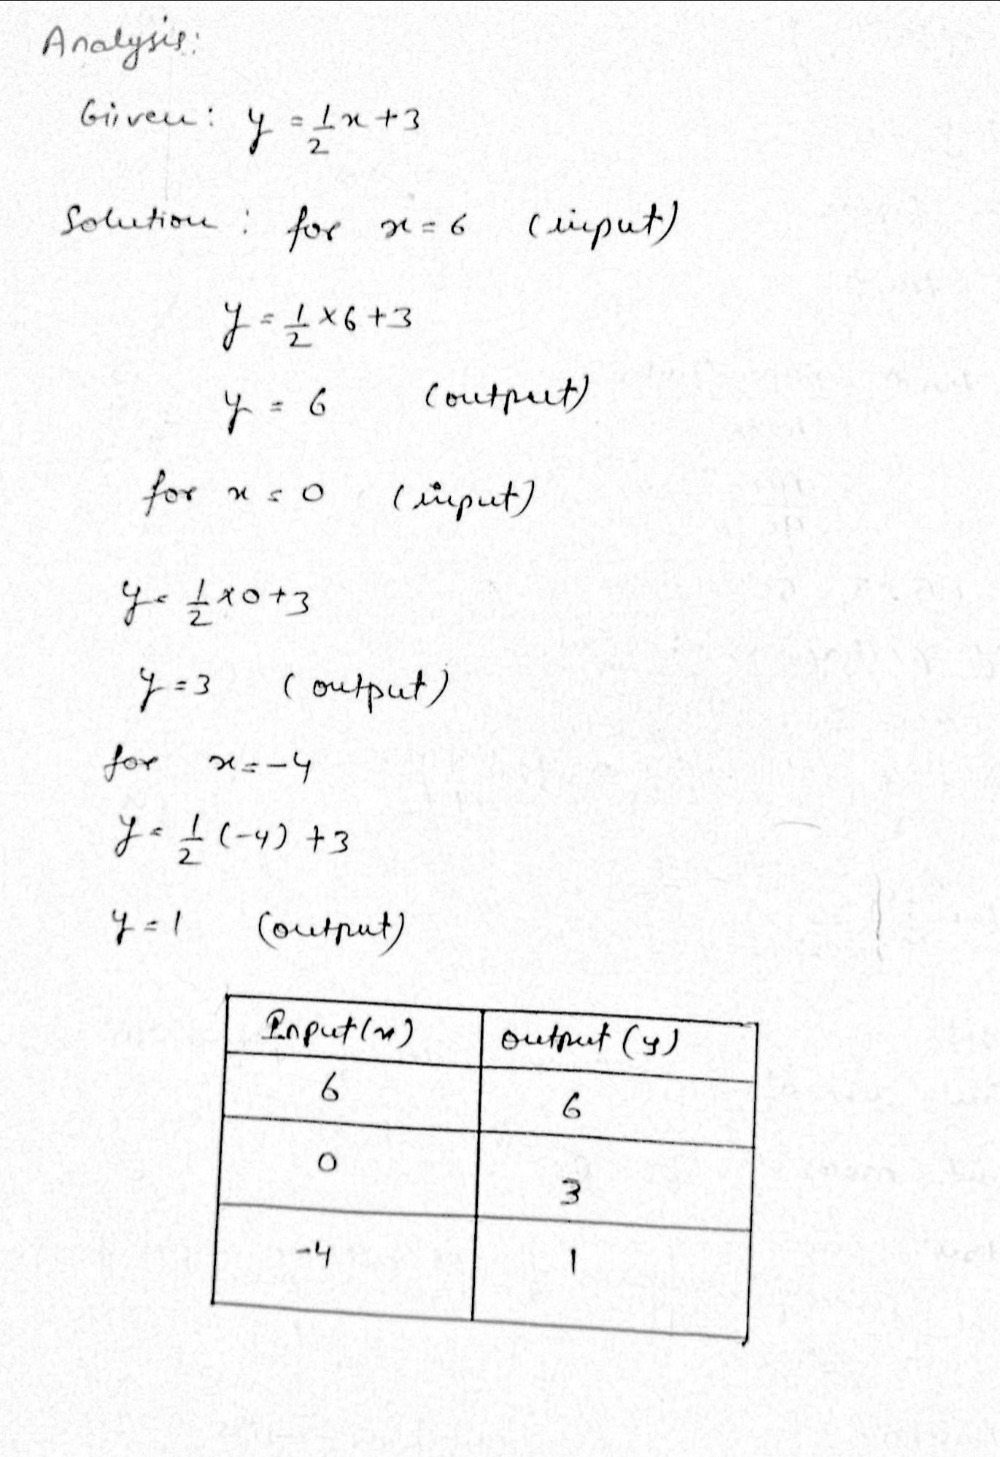 Analysis:
Given: y = 1/2 x + 3
Solution: for x = 6 (input)
y = 1/2 × 6 + 3
y = 6 (output)
for x = 0 (input)
y = 1/2 × 0 + 3
y = 3 (output)
for x = -4
y = 1/2 (-4) + 3
y = 1 (output)
Input (x) output (y)
6 6
0 3
-4 1